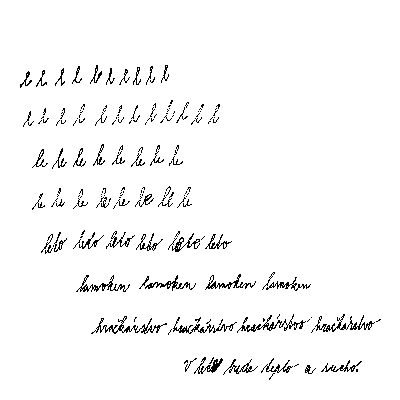 l l l l l l l l l
l l l l l l l l l l l
le le le le le le le le
le le le le le le le le
leto leto leto leto leto leto
lamoken lamoken lamoken lamoken
hračkárstvo hračkárstvo hračkárstvo hračkárstvo
V lete bude teplo a sucho.